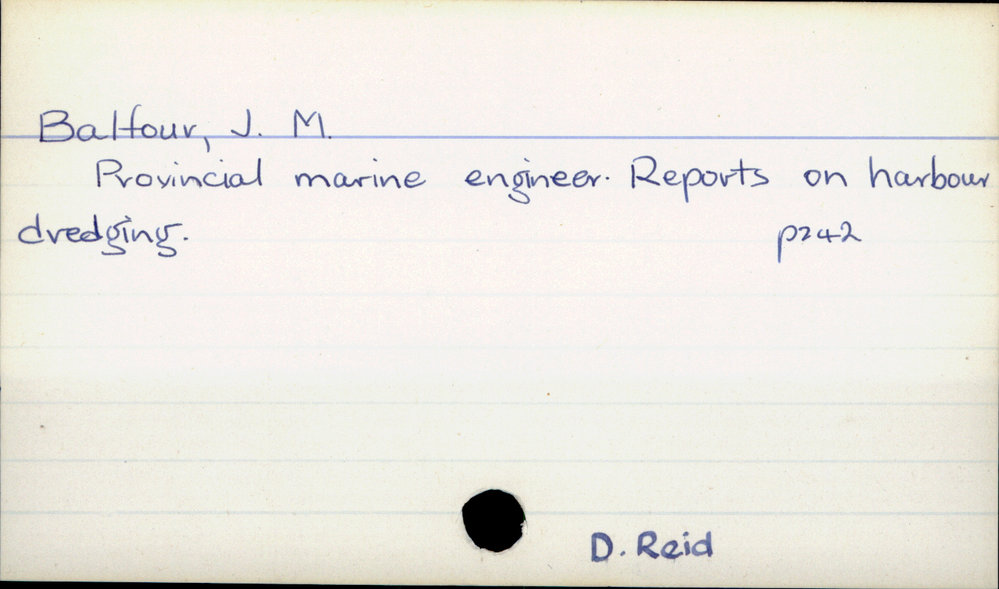 Balfour, J. M.
Provincial marine engineer. Reports on harbour
dredging. p242
D. Reid